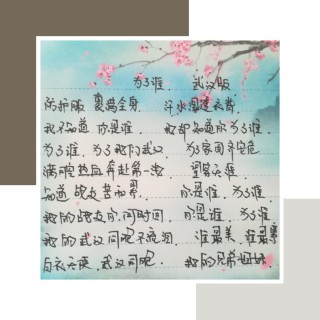 为了谁. 武汉版
防护服 裹满全身. 汗水浸透衣背.
我不知道 你是谁. 我却知道你为了谁.
为了谁 为了我们武汉 为了家国齐安危
满腔热血奔赴第一次. 望穿天涯
知道 战友苦和累. 你是谁. 为了谁.
我的战友你何时回. 你是谁 为了谁
我的武汉同胞不流泪. 谁最美 谁最累
白衣天使. 武汉同胞. 我的兄弟姐妹.